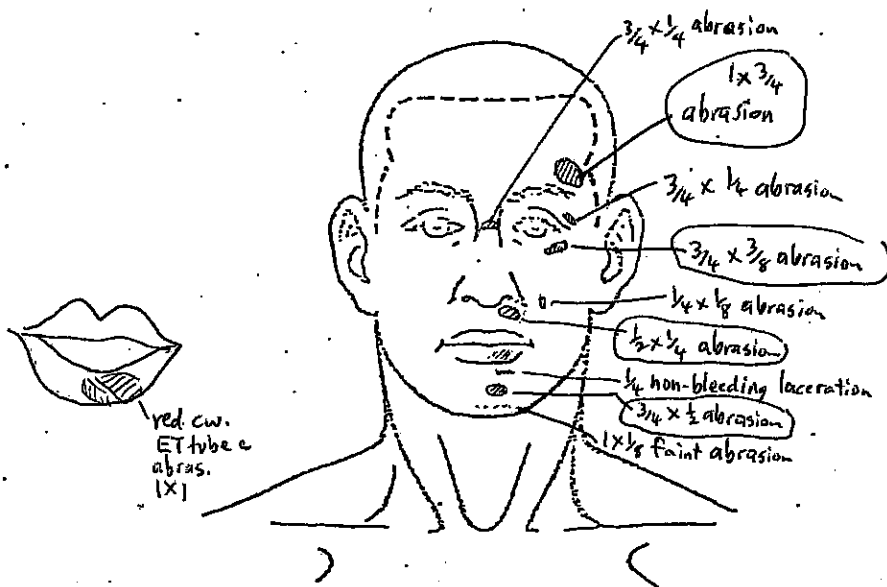 3/4 x 1/4 abrasion
1 x 3/4
abrasion
3/4 x 1/4 abrasion
3/4 x 3/8 abrasion
1/4 x 1/8 abrasion
1/2 x 1/4 abrasion
1/4 non-bleeding laceration
3/4 x 1/2 abrasion
1 x 1/8 faint abrasion
red. cw.
ET tube c
abras.
1X1